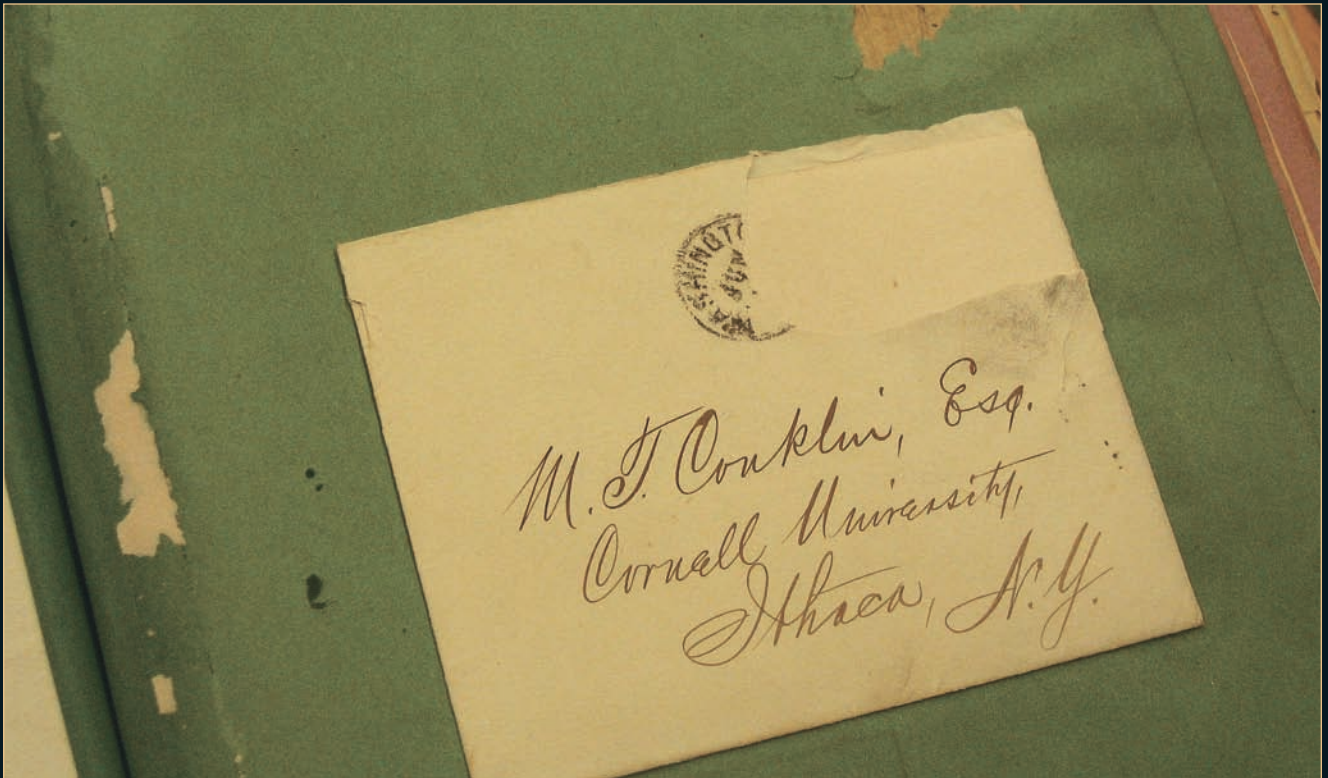 WASHINGTO
JUN
M. T. Conklin, Esq.
Cornell University,
Ithaca, N.Y.